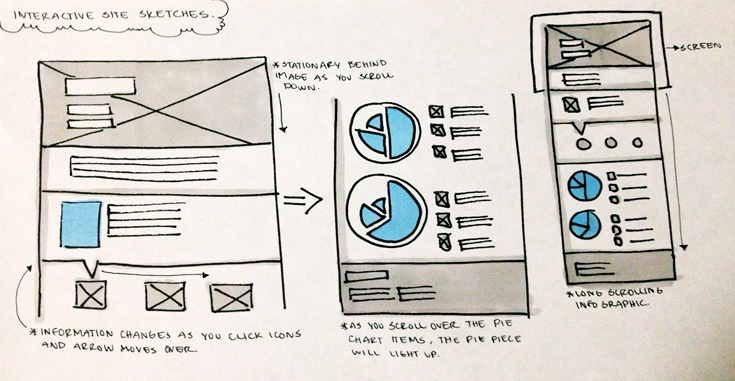 INTERACTIVE SITE SKETCHES.
*STATIONARY BEHIND
IMAGE AS YOU SCROLL
DOWN.
SCREEN
*INFORMATION CHANGES AS YOU CLICK ICONS
AND ARROW MOVES OVER.
*AS YOU SCROLL OVER THE PIE
CHART ITEMS, THE PIE PIECE
WILL LIGHT UP.
*LONG SCROLLING
INFOGRAPHIC.